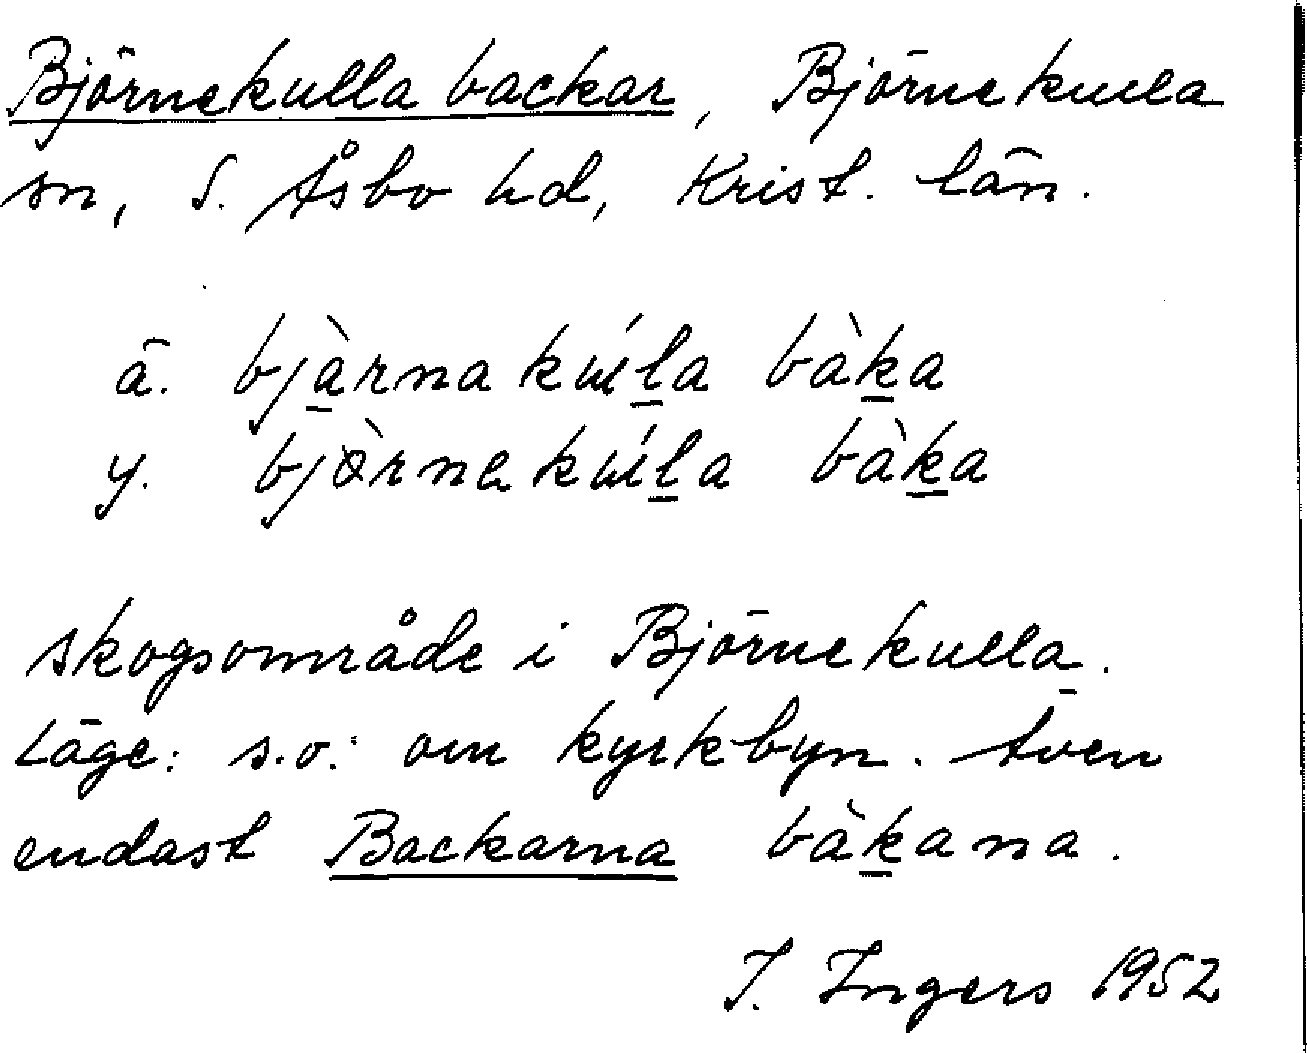 Björnekulla backar, Björnekulla
sn, S. Åsbo hd, Krist. län.
ä. bjàrnakúla bàka
y. bjòrnekúla bàka
skogsområde i Björnekulla.
Läge: s.o. om kyrkbyn. Även
endast Backarna bàkana.
I. Ingers 1952